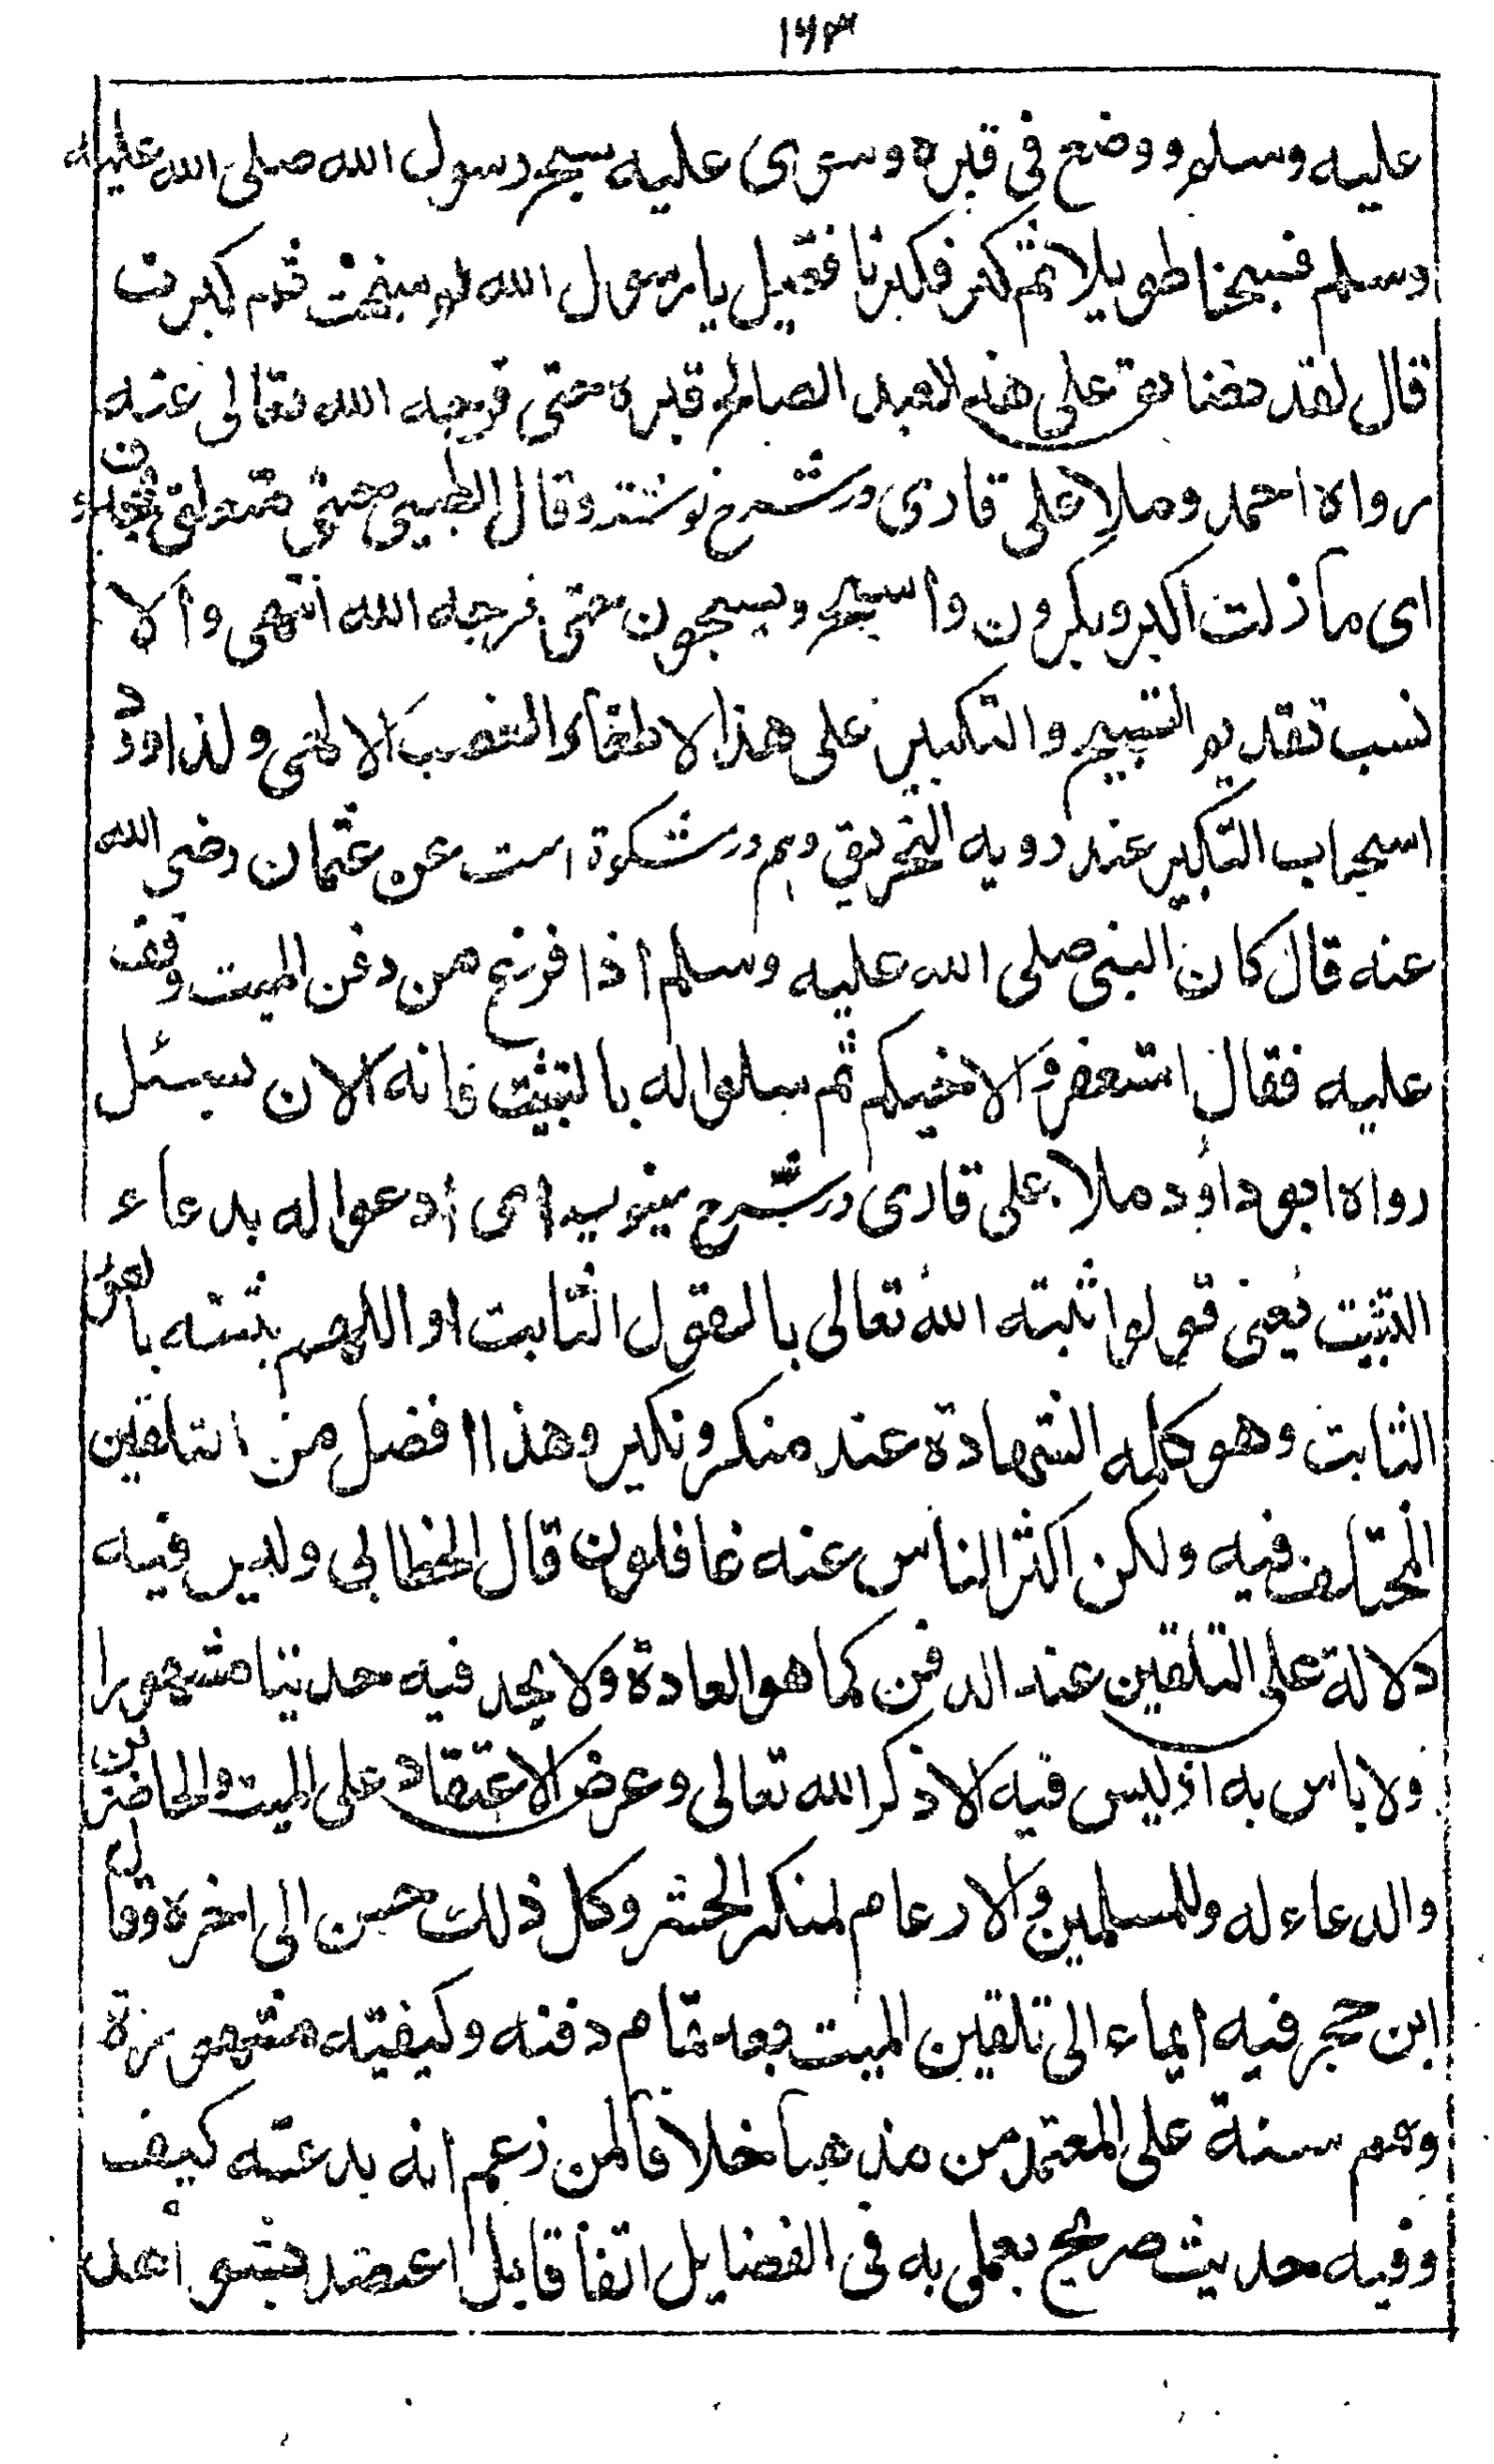 ۱۶۳
عليه وسلم ووضع فى قبره وسوى عليه سبح رسول الله صلى الله عليه
وسلم فسبحنا طويلا ثم كبر فكبرنا فقيل يا رسول الله لم سبحت ثم كبرت
قال لقد تضايق على هذا لعبد الصالح قبره حتى فرجه الله تعالى عنه
رواه احمد وملا على قارى در شرح نوشته وقال الطيبى حتى متعلق
اى ما زلت اكبر ويكبرون وأسبح ويسبحون حتى فرجه الله انتهى والا
نسب تقديم التسبيح والتكبير على هذا الاطفاء الغضب الالهى ولذا ورد
استحباب التكبير عند رويه التحريق وهم در مشكوة است عن عثمان رضى الله
عنه قال كان النبى صلى الله عليه وسلم اذا فرغ من دفن الميت وقف
عليه فقال استغفروا لاخيكم ثم سلوا له بالتثبيت فانه الان يسئل
رواه ابو داؤد ملا على قارى در شرح مينويسد اى أدعوا له بدعاء
التثبيت يعنى قولوا ثبته الله تعالى بالقول الثابت او اللهم ثبته بالقول
الثابت وهو كلمه الشهادة عند منكر ونكير وهذا افضل من التلقين
المختلف فيه ولكن اكثر الناس عنه غافلون قال الخطابى وليس فيه
دلالة على التلقين عند الدفن كما هو العادة ولا يجد فيه حديثا مشهورا
ولا باس به اذ ليس فيه الا ذكر الله تعالى وعرض الاعتقاد على الميت والحاضرين
والدعاء له وللمسلمين والارغام لمنكر الحشر وكل ذلك حسن الى اخره وقال
ابن حجر فيه ايماء الى تلقين الميت بعد تمام دفنه وكيفيته مشهورة
وهم سنة على المعتمد من مذهبنا خلافا لمن زعم انه بدعته كيف
وفيه حديث صريح يعمل به فى الفضايل اتفاقا بل اعتضد بشواهد